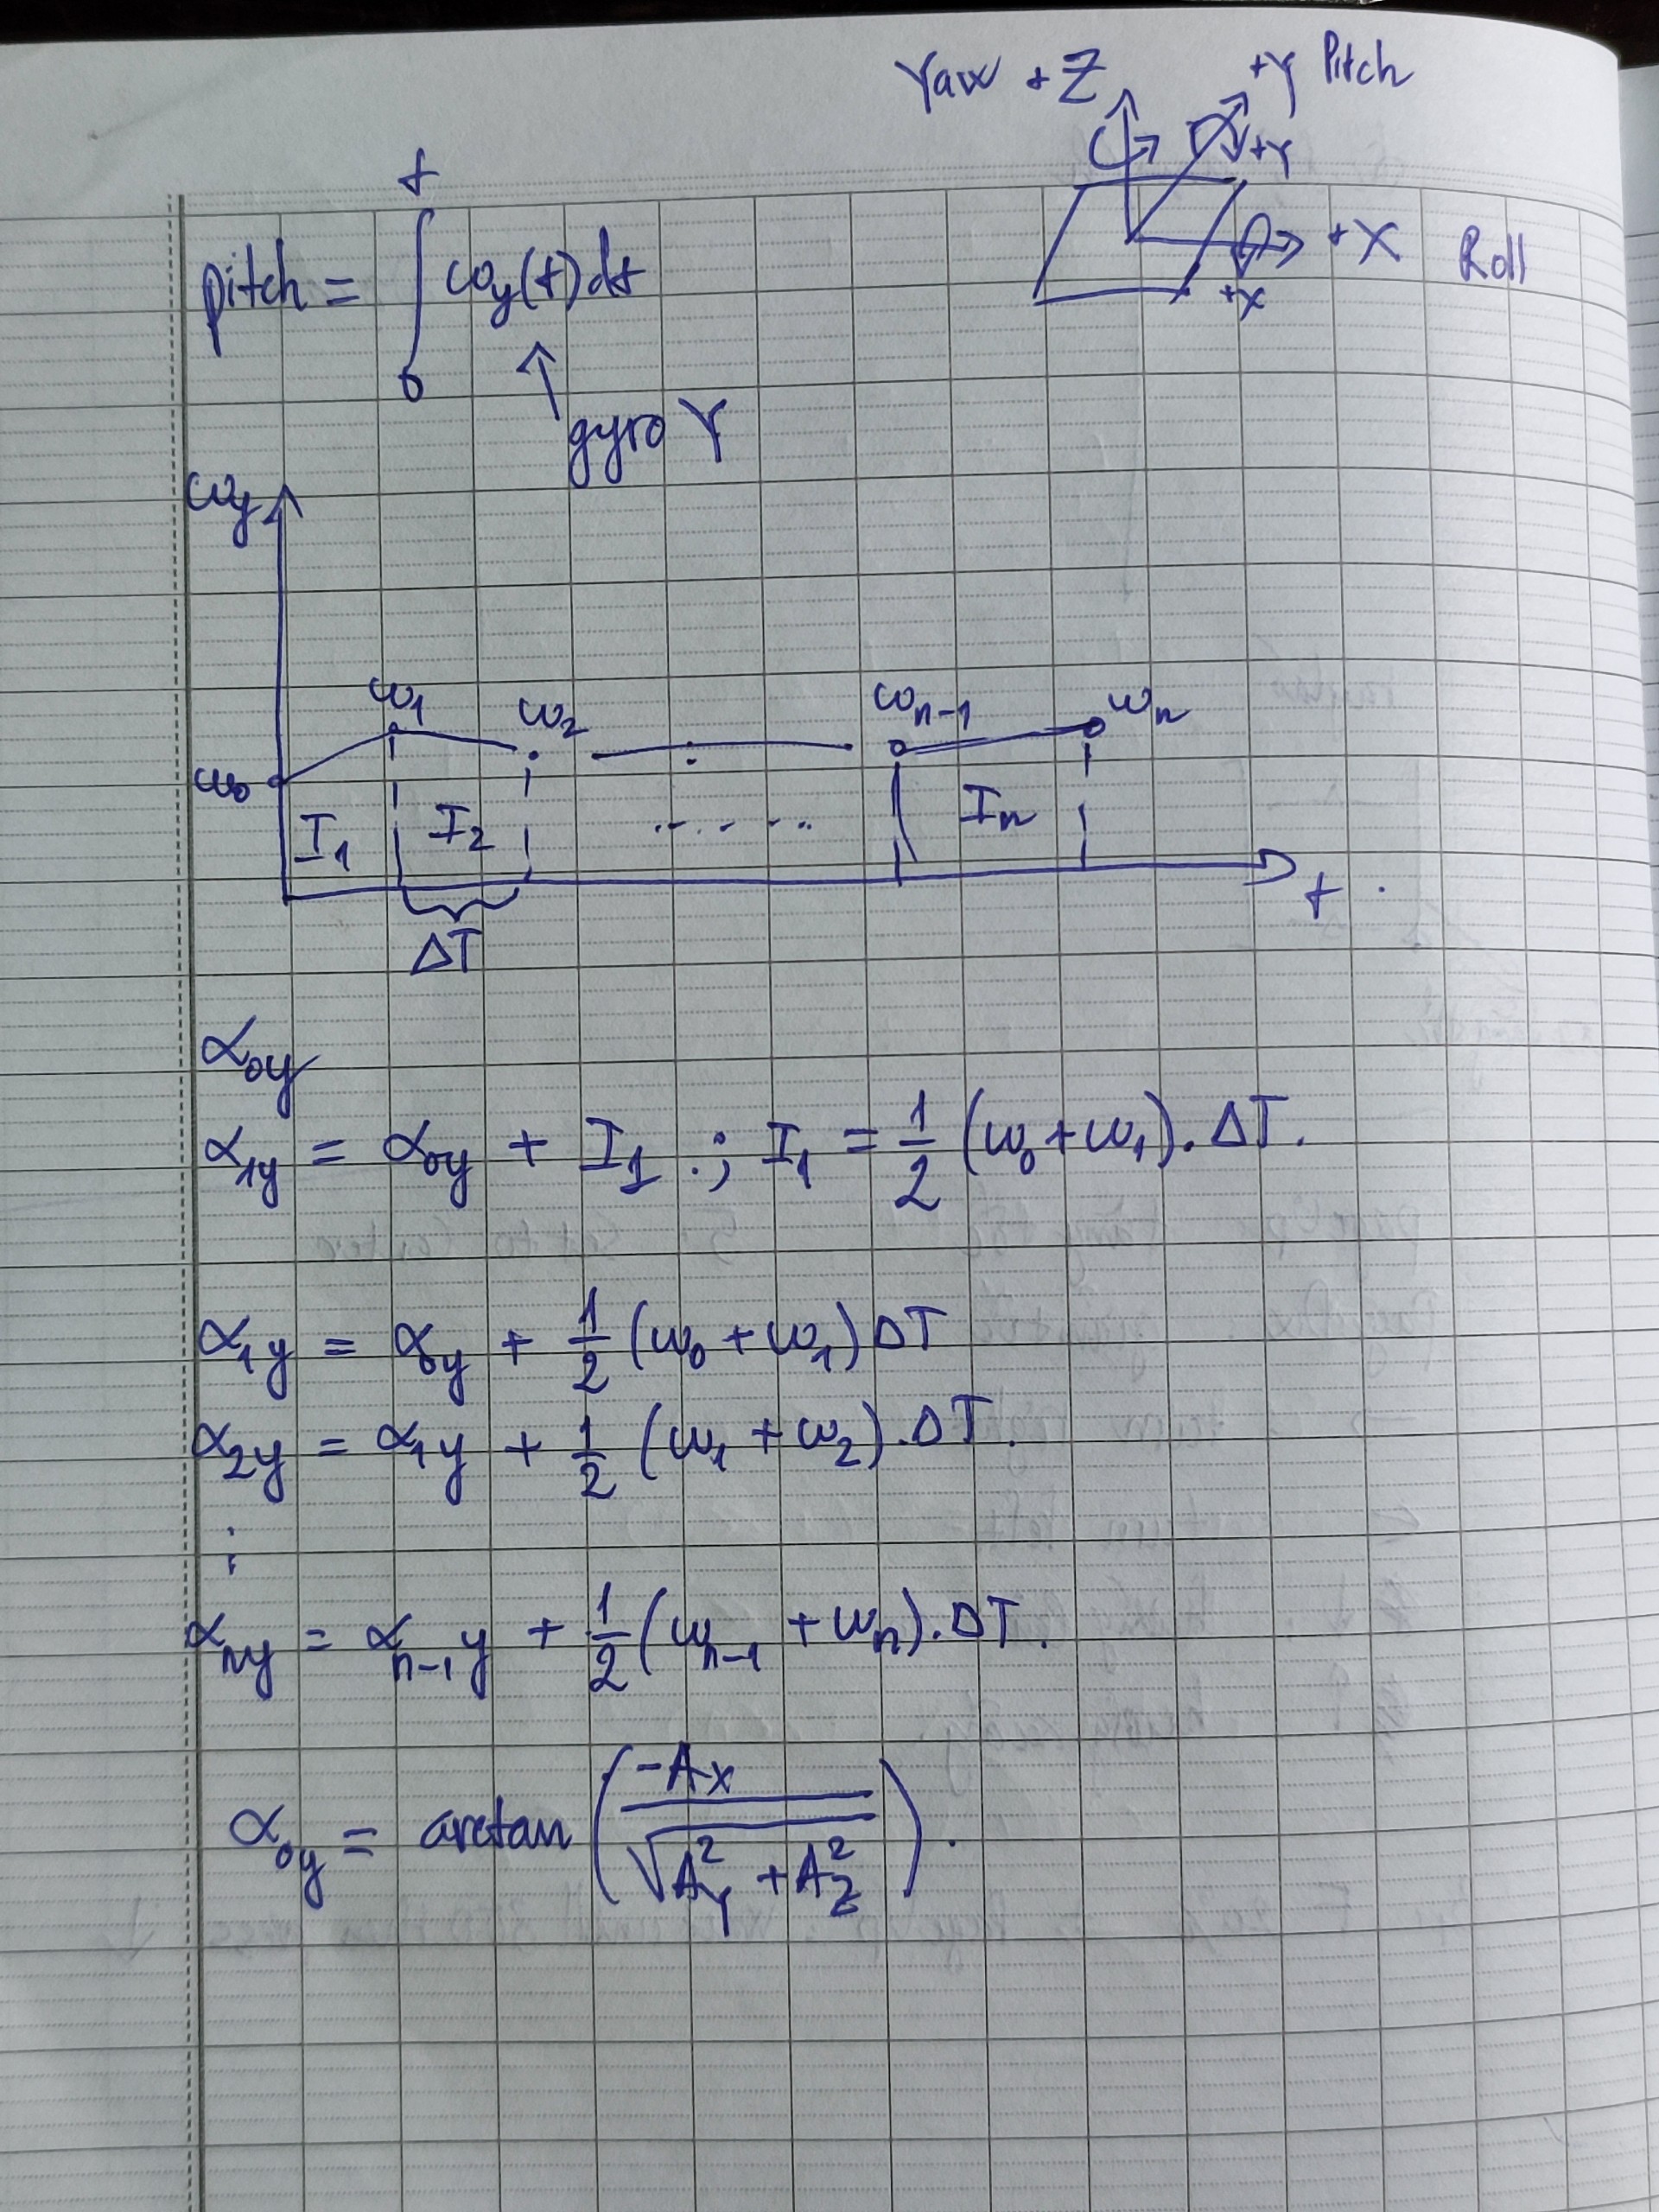 Yaw +Z
+Y Pitch
+Y
+X Roll
+X
pitch = ∫₀ᵗ ω_y(t)dt
↑
gyro Y
ω_y
ω₀ ω₁ ω₂ ω_{n-1} ω_n
I₁ I₂ ..... I_n
t
ΔT
α_{0y}
α_{1y} = α_{0y} + I₁ .; I₁ = 1/2 (ω₀+ω₁). ΔT.
α_{1y} = α_{0y} + 1/2 (ω₀+ω₁)ΔT
α_{2y} = α_{1y} + 1/2 (ω₁+ω₂).ΔT.
⋮
α_{ny} = α_{n-1 y} + 1/2 (ω_{n-1} + ω_n).ΔT.
α_{0y} = arctan (-A_X / √(A_Y² + A_Z²)).